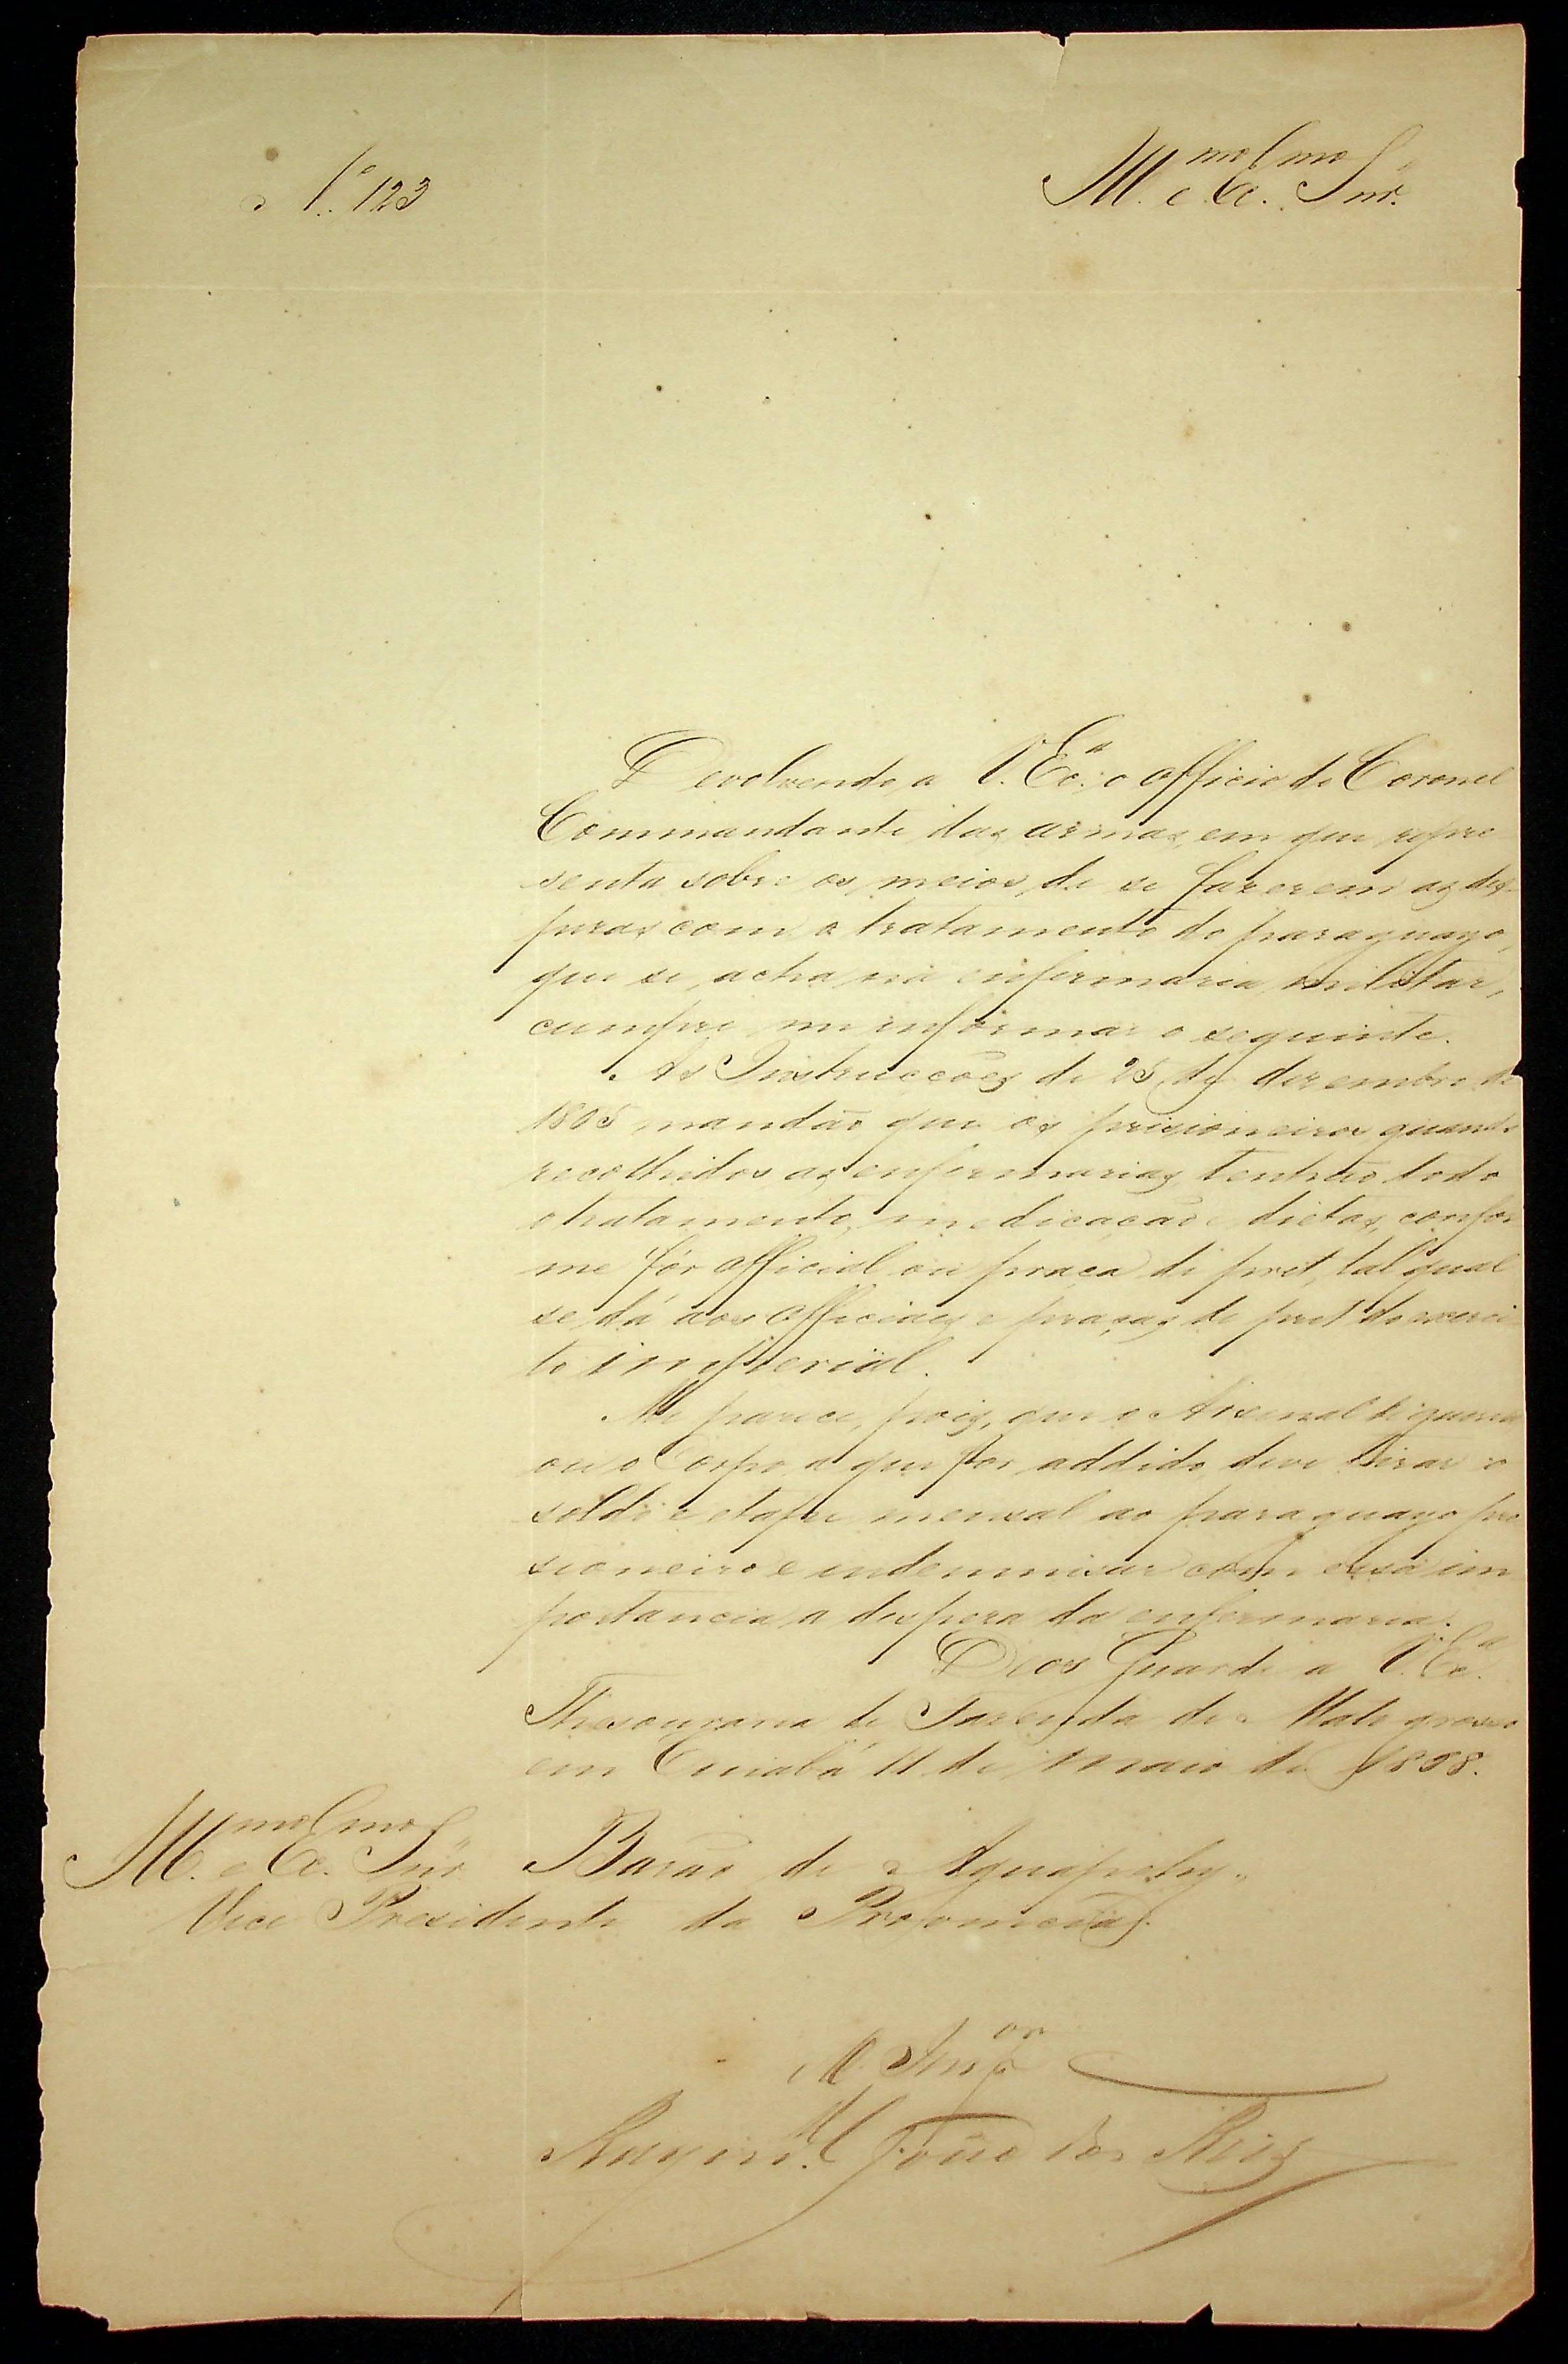 N.º 123
Ill.mo e Ex.mo Snr.
Devolvendo a V. Ex.a o officio do Coronel
Commandante das armas, em que repre
senta sobre os meios de se fazerem as des-
pezas com o tratamento do paraguayo,
que se acha na enfermaria militar,
cumpre me informar o seguinte.
As Instrucções de 25 de dezembro de
1865 mandão que os prisioneiros quando
recolhidos as enfermarias tenhão todo
o tratamento, medicação e dietas, confor
me fôr official ou praça de pret, tal qual
se dá aos officiaes e praças de pret do exerci
to imperial.
Me parece, pois, que o Arsenal de guerra
ou o Corpo a que for addido, deve tirar o
soldo e etape mensal ao paraguayo pri
sioneiro e indemnisar com essa im
portancia a despeza da enfermaria.
Deos Guarde a V. Ex.a
Thesouraria de Fazenda de Mato grosso
em Cuiabá 11 de Maio de 1868.
Ill.mo e Ex.mo Snr. Barão de Aguapehy.
Vice Presidente da Provincia.
O Insp.or
José dos Reis